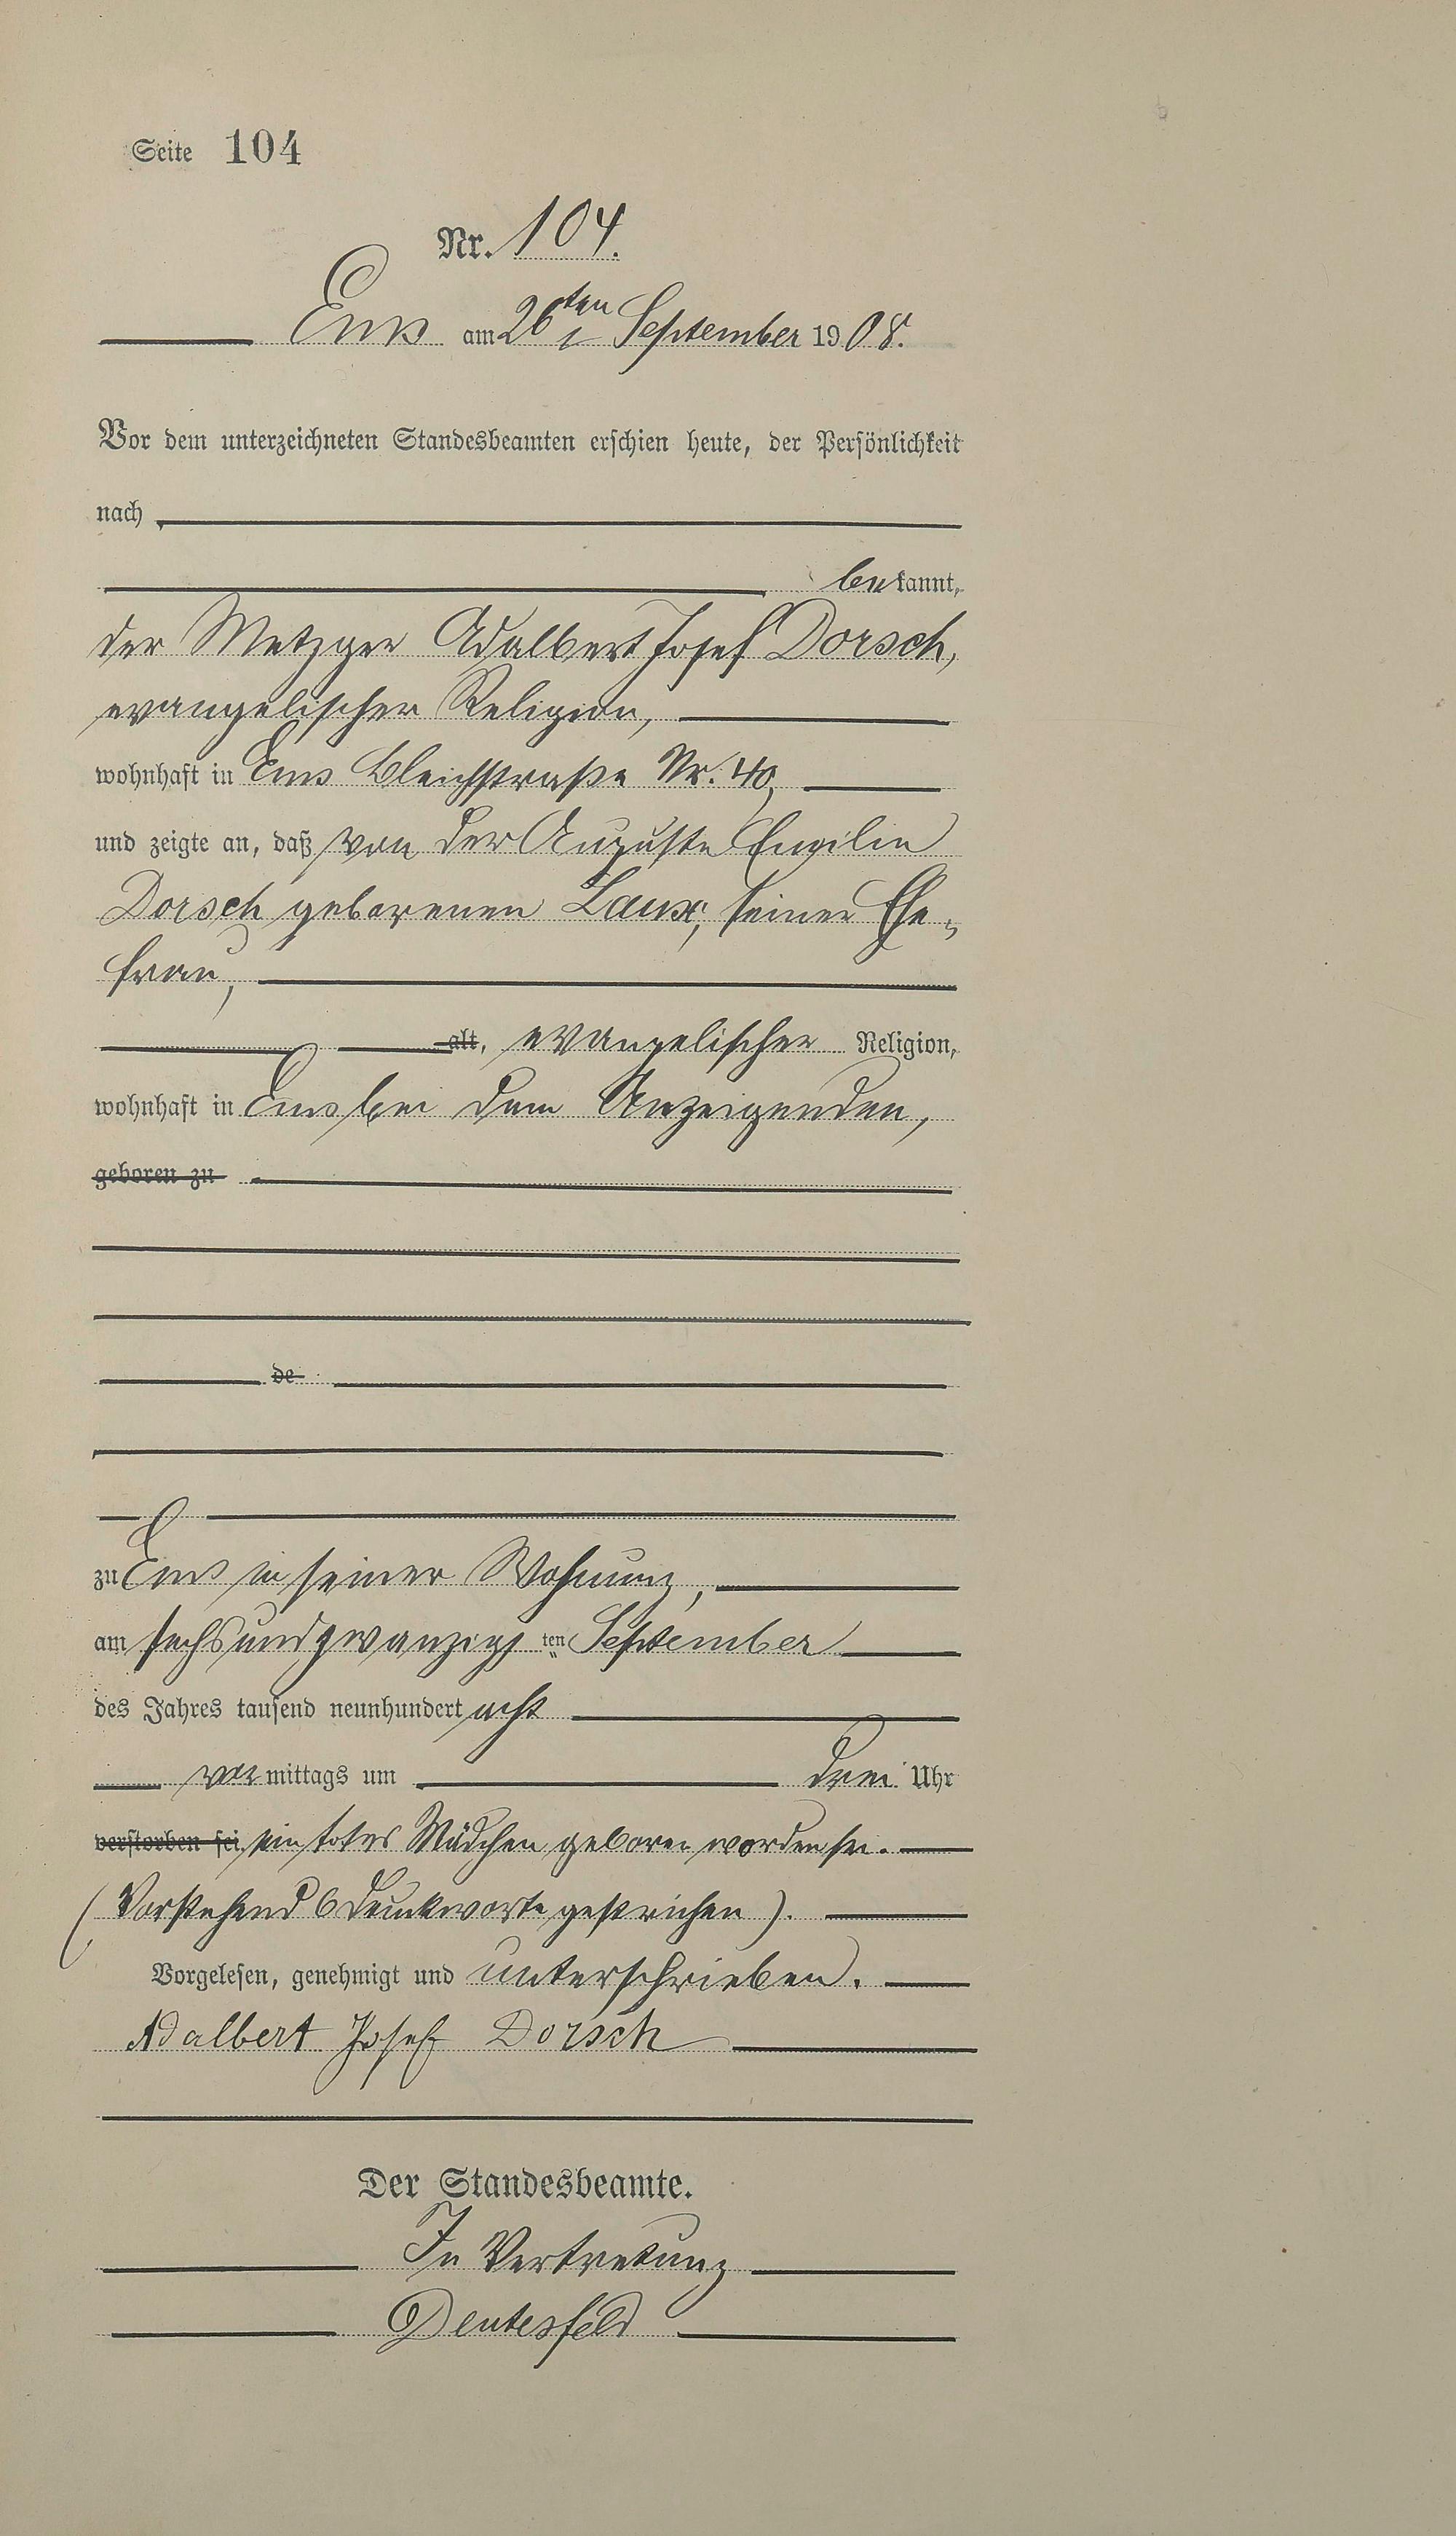 Seite 104
Nr. 104.
Ems am 26ten September 1908.
Vor dem unterzeichneten Standesbeamten erschien heute, der Persönlichkeit
nach
bekannt,
der Metzger Adalbert Josef Dorsch,
evangelischer Religion,
wohnhaft in Ems Bleichstraße Nr. 40,
und zeigte an, daß von der Auguste
Dorsch geborenen Laux, seiner Ehe-
frau,
alt, evangelischer Religion,
wohnhaft in Ems bei dem Anzeigenden,
geboren zu
de
zu Ems in seiner Wohnung,
am sechsundzwanzigsten September
des Jahres tausend neunhundert acht
vormittags um drei Uhr
verstorben sei. ein totes Mädchen geboren worden sei.
(Vorstehend 6 Druckworte gestrichen).
Vorgelesen, genehmigt und unterschrieben.
Adalbert Josef Dorsch
Der Standesbeamte.
In Vertretung